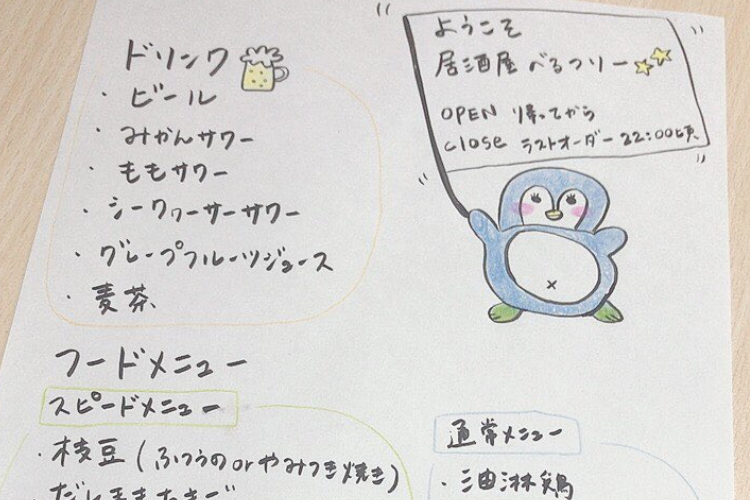 ようこそ
居酒屋 べるつリー
OPEN 帰ってから
close ラストオーダー 22:00頃
ドリンク
・ビール
・みかんサワー
・ももサワー
・シークヮーサーサワー
・グレープフルーツジュース
・麦茶
フードメニュー
スピードメニュー
・枝豆(ふつうのorやみつき焼き)
通常メニュー
・油淋鶏